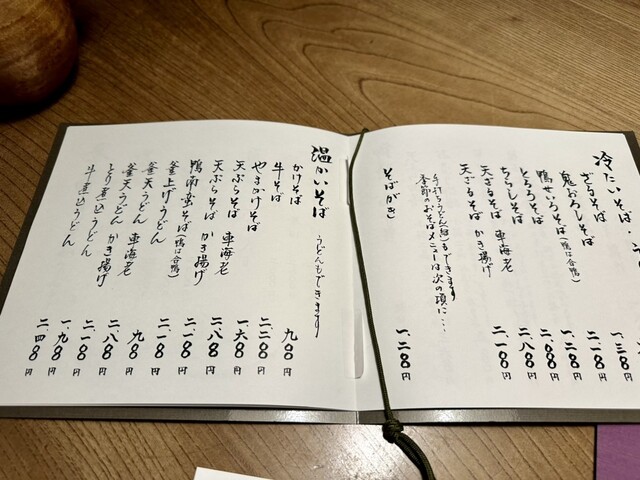 冷たいそば・う
ざるそば
鬼おろしそば 一.三〇〇円
鴨せいろそば(鴨は合鴨) 二.一〇〇円
とろろそば 一.二〇〇円
ちらしそば 二.〇〇〇円
天ざるそば 車海老 二.八〇〇円
天ざるそば かき揚げ 二.一〇〇円
手打ちうどん(細)もできます
季節のおそばメニューは次の項に…
そばがき 一.二〇〇円
温かいそば うどんもできます
かけそば 九〇〇円
牛そば 二.二〇〇円
やまかけそば 一.六〇〇円
天ぷらそば 車海老 二.八〇〇円
天ぷらそば かき揚げ 二.一〇〇円
鴨南蛮そば(鴨は合鴨) 二.一〇〇円
釜上げうどん 九〇〇円
釜天うどん 車海老 二.八〇〇円
釜天うどん かき揚げ 二.一〇〇円
とり煮込うどん 一.九〇〇円
牛煮込うどん 二.四〇〇円